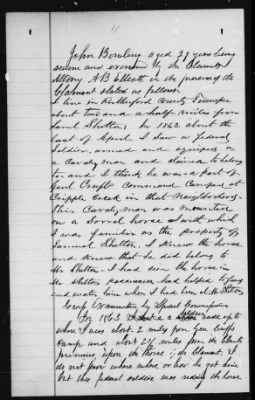 John Bowling aged 28 years being
sworn and examined by the Claimants
Attorney A B in the presence of the
Claimant stated as follows
I live in Rutherford County Tennessee
about two and a half miles from
Saml Shelton. In 1863 about the
last of April I saw a Federal
Soldier, armed and equipped as
a Cavalry man and claimed to belong
to and I think he was a part of
Genl command Camped at
Cripple Creek in that Neighborhood
This Cavalry man was mounted
on a Sorrel horse with which
I was familiar as the property of
Samuel Shelton. I Knew the horse
and Knew that he did belong to
Mr Shelton. I had seen the horse in
Mr Sheltons possession had helped
and water him when I lived at Mr Sheltons
Cross Examination by Special Commissioner
In 1863 a soldier rode up to
where I was about 2 miles from Gen
camp and about 2 1/2 miles from the Clmts
premises, upon the horse of claimant. I
do not know where or how he got him
but this federal soldier was riding the horse